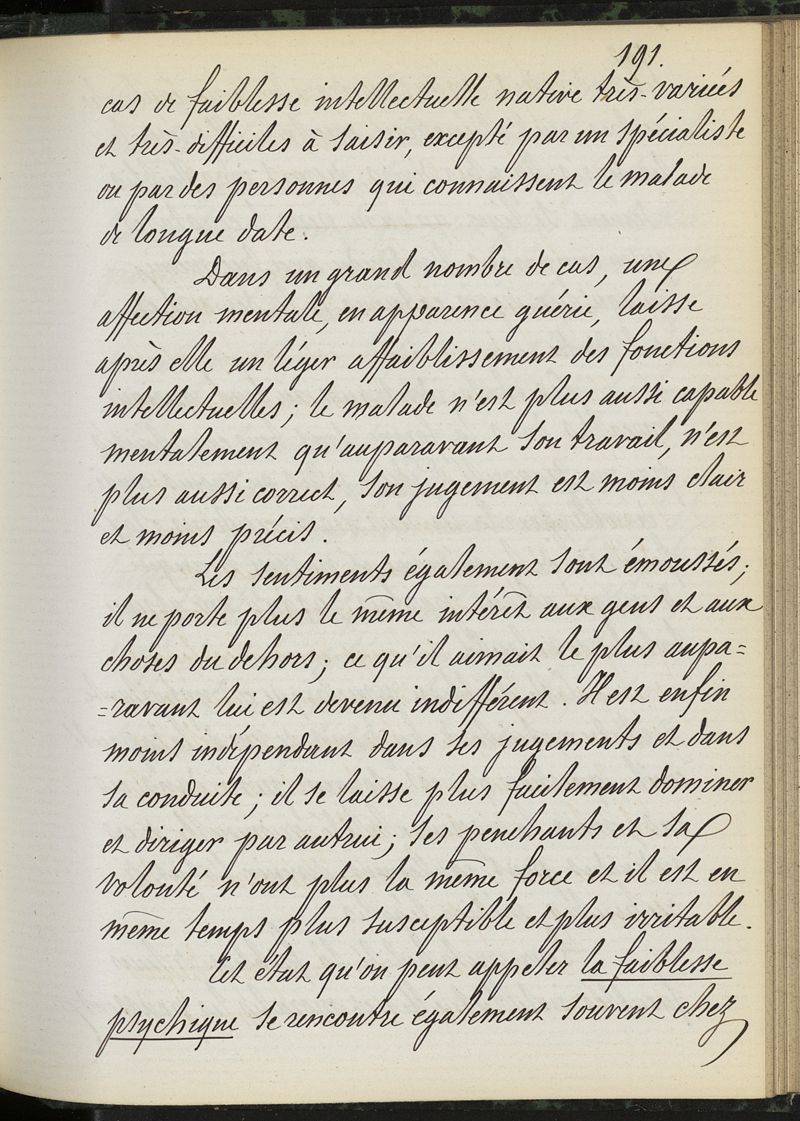 191.
cas de faiblesse intellectuelle native très-variées
et très-difficiles à saisir, excepté par un spécialiste
ou par des personnes qui connaissent le malade
de longue date.
Dans un grand nombre de cas, une
affection mentale, en apparence guérie, laisse
après elle un léger affaiblissement des fonctions
intellectuelles; le malade n'est plus aussi capable
mentalement qu'auparavant son travail, n'est
plus aussi correct, son jugement est moins clair
et moins précis.
Les sentiments également sont émoussés;
il ne porte plus le même intérêt aux gens et aux
choses du dehors; ce qu'il aimait le plus aupa=
=ravant lui est devenu indifférent. Il est enfin
moins indépendant dans ses jugements et dans
sa conduite; il se laisse plus facilement dominer
et diriger par autrui; ses penchants et sa
volonté n'ont plus la même force et il est en
même temps plus susceptible et plus irritable.
Cet état qu'on peut appeler la faiblesse
psychique se rencontre également souvent chez